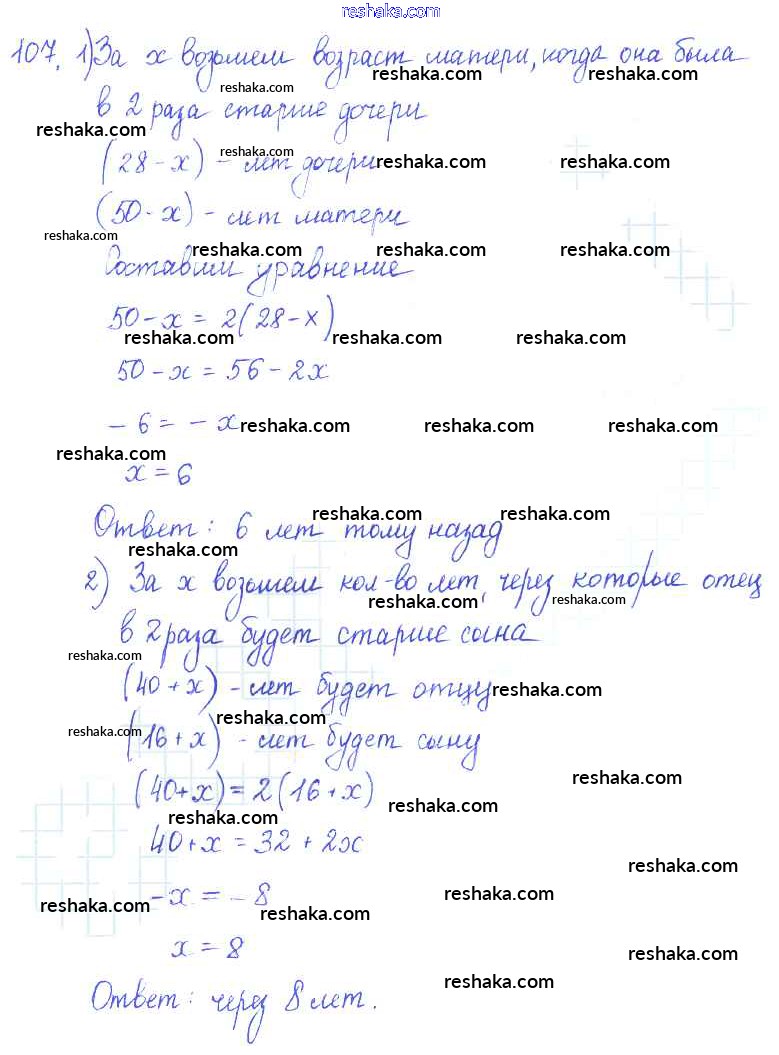 reshaka.com
107. 1) За x возьмем возраст матери, когда она была
reshaka.com reshaka.com reshaka.com
в 2 раза старше дочери
reshaka.com
(28 - x) - лет дочери
reshaka.com reshaka.com reshaka.com
(50 - x) - лет матери
reshaka.com
reshaka.com reshaka.com reshaka.com
Составим уравнение
50 - x = 2(28 - x)
reshaka.com reshaka.com reshaka.com
50 - x = 56 - 2x
- 6 = - x
reshaka.com reshaka.com reshaka.com
reshaka.com
x = 6
reshaka.com reshaka.com
Ответ: 6 лет тому назад
reshaka.com
2) За x возьмем кол-во лет, через которые отец
reshaka.com reshaka.com
в 2 раза будет старше сына
reshaka.com
(40 + x) - лет будет отцу
reshaka.com
reshaka.com
reshaka.com
(16 + x) - лет будет сыну
reshaka.com
(40+x) = 2(16 + x)
reshaka.com
reshaka.com
40 + x = 32 + 2x
reshaka.com
-x = - 8
reshaka.com
reshaka.com reshaka.com
x = 8
reshaka.com
reshaka.com
Ответ: через 8 лет.